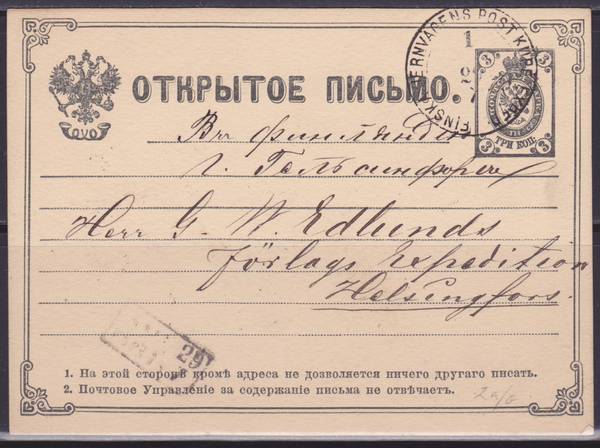 FINSKA JERNVÄGENS POST KUPE EXPED.
1
ОТКРЫТОЕ ПИСЬМО.
3 3
ТРИ КОП.
3 3
Въ Финляндію
г. Гельсингфорсъ
Herr G. W. Edlunds
Förlags Expedition
Helsingfors.
29
1. На этой сторонѣ кромѣ адреса не дозволяется ничего другаго писать.
2. Почтовое Управленіе за содержаніе письма не отвѣчаетъ.